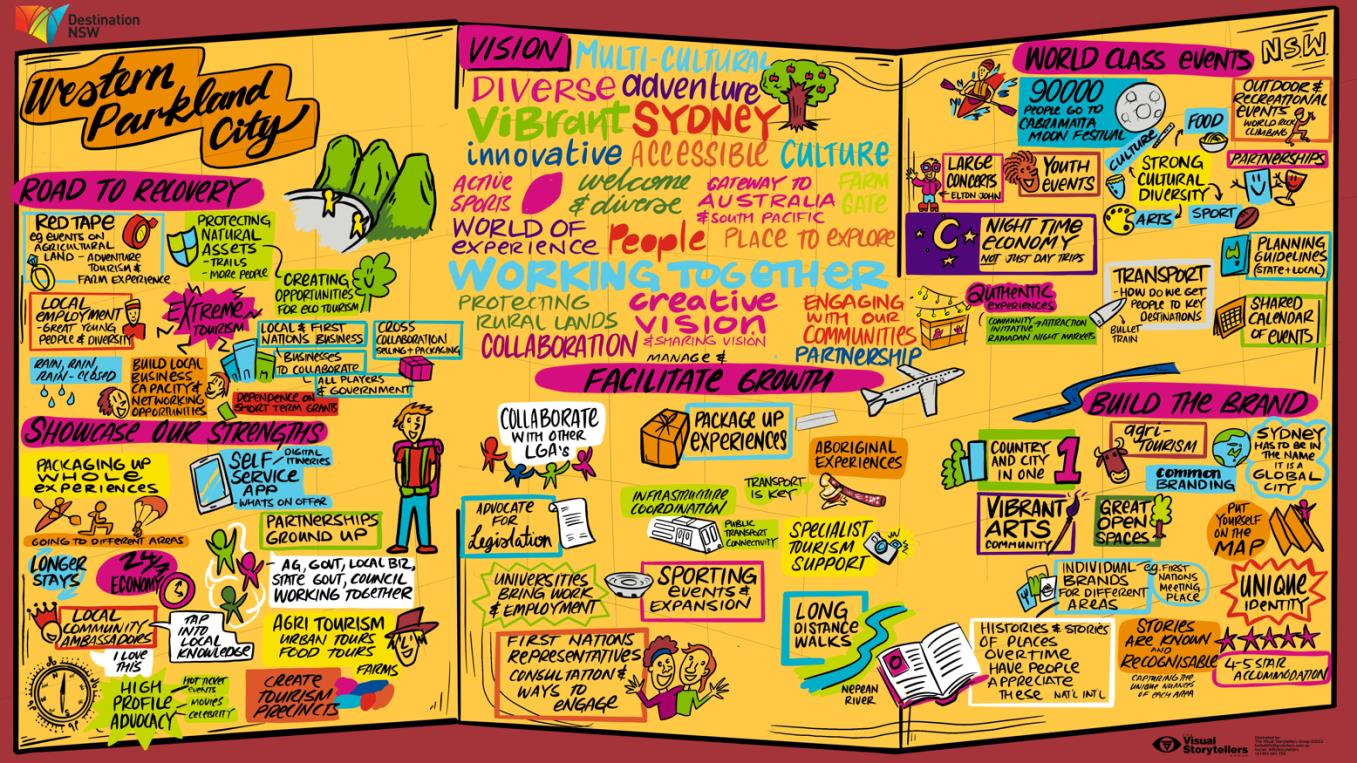 Destination
NSW
Western
Parkland
City
ROAD TO RECOVERY
RED TAPE
eg EVENTS ON
AGRICULTURAL
LAND - ADVENTURE
TOURISM &
FARM EXPERIENCE
PROTECTING
NATURAL
ASSETS
- TRAILS
- MORE PEOPLE
CREATING
OPPORTUNITIES
FOR ECO TOURISM
LOCAL
EMPLOYMENT
- GREAT YOUNG
PEOPLE & DIVERSITY
EXTREME
TOURISM
LOCAL & FIRST
NATIONS BUSINESS
BUSINESSES
TO COLLABORATE
ALL PLAYERS
& GOVERNMENT
CROSS
COLLABORATION
SELLING + PACKAGING
RAIN, RAIN,
RAIN - CLOSED
BUILD LOCAL
BUSINESS
CAPACITY &
NETWORKING
OPPORTUNITIES
DEPENDENCE ON
SHORT TERM GRANTS
SHOWCASE OUR STRENGTHS
PACKAGING UP
WHOLE
EXPERIENCES
GOING TO DIFFERENT AREAS
SELF
SERVICE
APP
DIGITAL
ITINERIES
WHATS ON OFFER
PARTNERSHIPS
GROUND UP
- AG, GOVT, LOCAL BIZ,
STATE GOVT, COUNCIL
WORKING TOGETHER
LONGER
STAYS
24/7
ECONOMY
LOCAL
COMMUNITY
AMBASSADORS
I LOVE
THIS
TAP
INTO
LOCAL
KNOWLEDGE
AGRI TOURISM
URBAN TOURS
FOOD TOURS
FARMS
HIGH
PROFILE
ADVOCACY
HOT TICKET
EVENTS
- MOVIES
CELEBRITY
CREATE
TOURISM
PRECINCTS
VISION
MULTI-CULTURAL
DIVERSE adventure
ViBrant SYDNEY
innovative ACCESSIBLE CULTURE
ACTIVE
SPORTS
welcome
& diverse
GATEWAY TO
AUSTRALIA
& SOUTH PACIFIC
FARM
GATE
WORLD OF
EXPERIENCE
People
PLACE TO EXPLORE
WORKING TOGETHER
PROTECTING
RURAL LANDS
creative
vision
& SHARING VISION
ENGAGING
WITH OUR
COMMUNITIES
COLLABORATION
PARTNERSHIP
MANAGE &
FACILITATE GROWTH
COLLABORATE
WITH OTHER
LGA's
PACKAGE UP
EXPERIENCES
ABORIGINAL
EXPERIENCES
ADVOCATE
FOR
Legislation
INFRASTRUCTURE
COORDINATION
TRANSPORT
IS KEY
PUBLIC
TRANSPORT
CONNECTIVITY
SPECIALIST
TOURISM
SUPPORT
UNIVERSITIES
BRING WORK
& EMPLOYMENT
SPORTING
EVENTS &
EXPANSION
FIRST NATIONS
REPRESENTATIVES
CONSULTATION &
WAYS TO
ENGAGE
LONG
DISTANCE
WALKS
NEPEAN
RIVER
WORLD CLASS EVENTS
NSW
90000
PEOPLE GO TO
CABRAMATTA
MOON FESTIVAL
OUTDOOR &
RECREATIONAL
EVENTS
WORLD ROCK
CLIMBING
LARGE
CONCERTS
- ELTON JOHN
YOUTH
EVENTS
CULTURE
FOOD
STRONG
CULTURAL
DIVERSITY
ARTS
SPORT
PARTNERSHIPS
NIGHT TIME
ECONOMY
NOT JUST DAY TRIPS
PLANNING
GUIDELINES
(STATE + LOCAL)
AUTHENTIC
EXPERIENCES
COMMUNITY → ATTRACTION
INITIATIVE
RAMADAN NIGHT MARKETS
TRANSPORT
- HOW DO WE GET
PEOPLE TO KEY
DESTINATIONS
BULLET
TRAIN
SHARED
CALENDAR
OF EVENTS
BUILD THE BRAND
COUNTRY
AND CITY
IN ONE
1
agri-
TOURISM
common
BRANDING
SYDNEY
HAS TO BE IN
THE NAME
IT IS A
GLOBAL
CITY
VIBRANT
ARTS
COMMUNITY
GREAT
OPEN
SPACES
PUT
YOURSELF
ON THE
MAP
INDIVIDUAL
BRANDS
FOR DIFFERENT
AREAS
eg. FIRST
NATIONS
MEETING
PLACE
UNIQUE
IDENTITY
HISTORIES & STORIES
OF PLACES
OVER TIME
HAVE PEOPLE
APPRECIATE
THESE NAT'L INT'L
STORIES
ARE KNOWN
AND
RECOGNISABLE
CAPTURING THE
UNIQUE NUANCES
OF EACH AREA
4-5 STAR
ACCOMMODATION
Visual
Storytellers